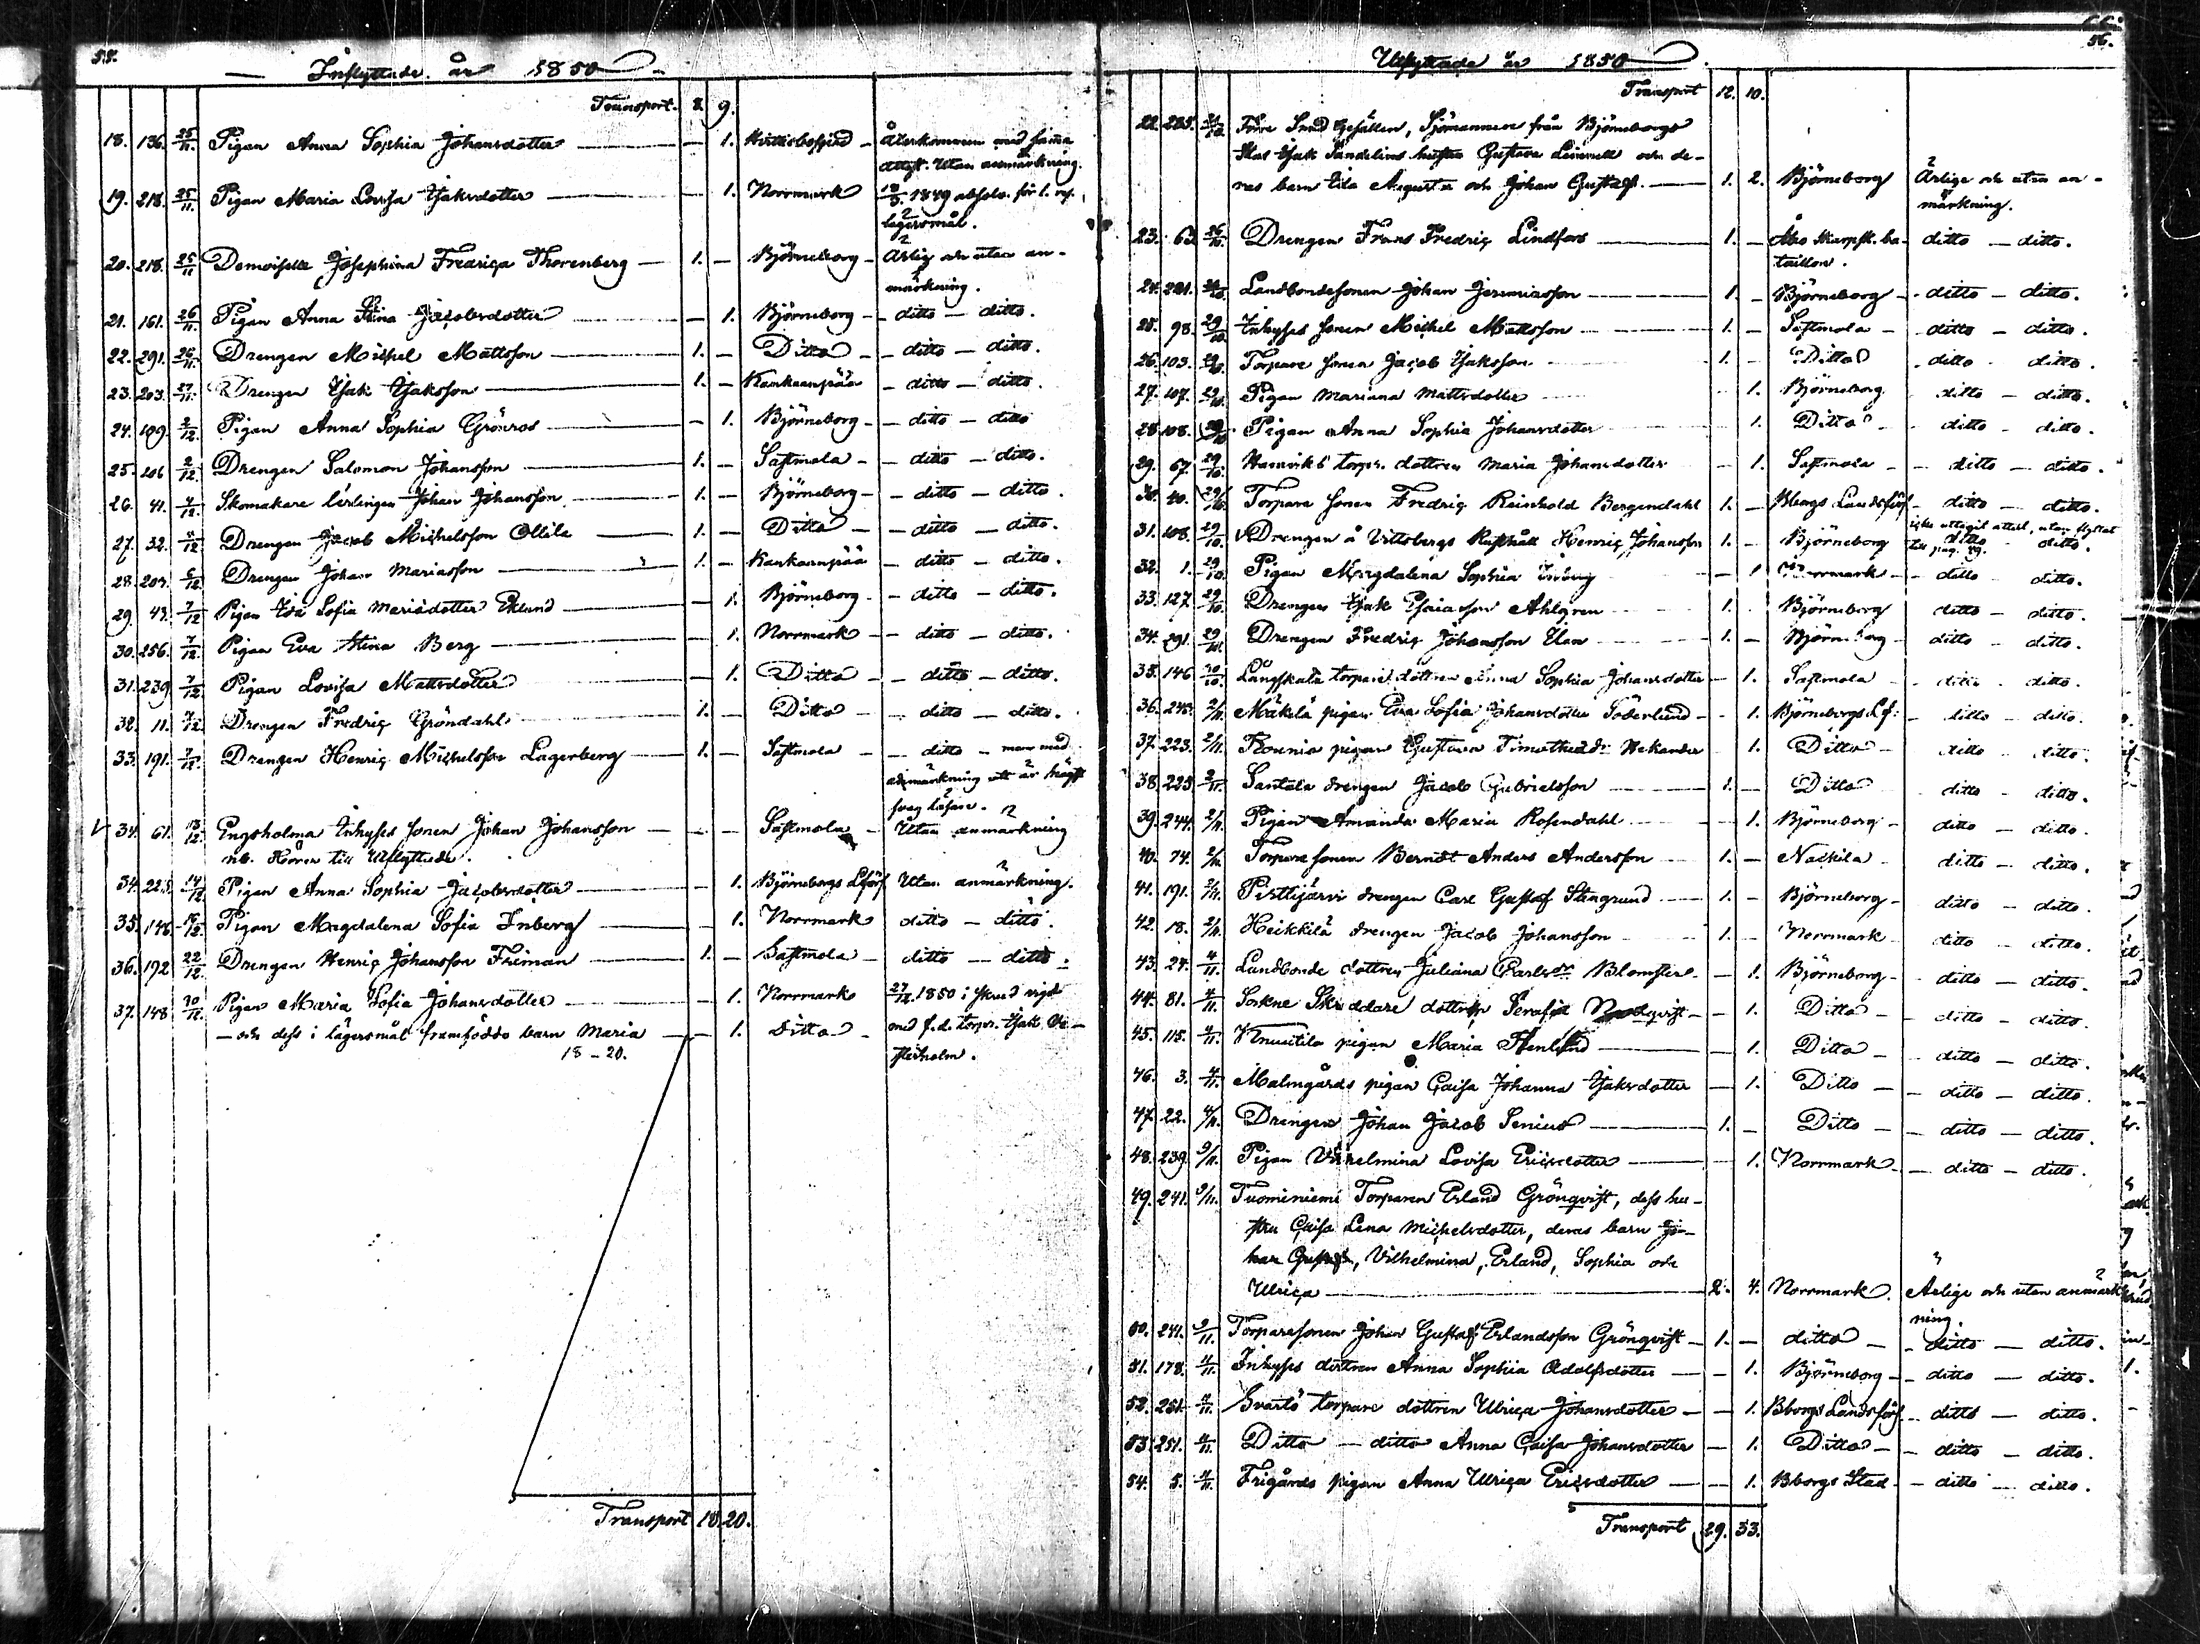 55.
Inflyttade år 1850
Transport. 8. 9.
18. 136. 25/11. Pigan Anna Sophia Johansdotter — 1. Hvittisbofjärd – Återkommen med samma
attest. Utan anmärkning.
19. 218. 25/11. Pigan Maria Lovisa Isaksdotter — 1. Norrmark 1849 absolv. för 1. resa
lägersmål.
20. 218. 25/11 Demoiselle Josephina Fredrica Thorenberg — 1. – Björneborg – Ärlig och utan an-
märkning.
21. 161. 26/11. Pigan Anna Stina Jacobsdotter — 1. Björneborg – ditto – ditto.
22. 291. 26/11. Drengen Michel Mattsson — 1. – Ditto – ditto – ditto.
23. 203. 27/11. Drengen Isak Isaksson — 1. – Kankaanpää – ditto – ditto.
24. 109. 2/12. Pigan Anna Sophia Grönroos — 1. Björneborg – ditto – ditto
25. 106 2/12. Drengen Salomon Johansson — 1. – Sastmola – ditto – ditto.
26. 41. 4/12. Skomakare lärlingen Johan Johansson — 1. – Björneborg – ditto – ditto.
27. 32. /12 Drengen Jacob Michelsson Ollila — 1. – Ditto – ditto – ditto.
28. 207. 6/12 Drengen Johan Mariasson — 1. – Kankaanpää – ditto – ditto.
29. 43. 7/12 Pigan Eva Sofia Mariasdotter Eklund — 1. Björneborg – ditto – ditto.
30. 256. 7/12. Pigan Eva Stina Berg — 1. Norrmark – ditto – ditto.
31. 239 7/12 Pigan Lovisa Mattsdotter — 1. Ditto – ditto – ditto.
32. 11. 7/12. Drengen Fredric Gröndahl — 1. – Ditto – ditto – ditto.
33. 191. 7/12. Drengen Henric Michelsson Lagerberg — 1. – Sastmola – ditto – men med
anmärkning att är högst
svag läsare.
34. 61. 13/12. Engsholma Inhyses sonen Johan Johansson — Sastmola – Utan anmärkning
nb. Hörer till Utflyttade.
34. 225. 14/12. Pigan Anna Sophia Jacobsdotter — 1. Björneborgs Lförs. Utan anmärkning.
35. 148. 16/12 Pigan Magdalena Sofia Inberg — 1. Norrmark ditto – ditto.
36. 192 22/12. Drengen Henric Johansson Friman — 1. – Sastmola – ditto – ditto.
37. 148 30/12 Pigan Maria Sofia Johansdotter — 1. Norrmark 27/12 1850 i Åbo vigd
– och dess i lägersmål framfödde barn Maria — 1. Ditto – med f.d. torpr. Isak
18 – 20.
Transport 18. 20.
56.
Utflyttade år 1850
Transport 12. 10.
22. 285. 21/10. Förre Smed Gesällen, Sjömannen från Björneborgs
Stad Isak Sandelins hustru Gustava Lovisa och de-
ras barn Ida Augusta och Johan Gustaf. — 1. 2. Björneborg Ärlige och utan an-
märkning.
23. 63. 26/10. Drengen Frans Fredric Lindfors — 1. – Åbo Skarpsk. ba- ditto – ditto.
taillon.
24. 281. /10. Landbondesonen Johan Jeremiasson — 1. – Björneborg – ditto – ditto.
25. 98. 29/10. Inhyses sonen Michel Mattsson — 1. – Sastmola – ditto – ditto.
26. 103. 29/10. Torpare sonen Jacob Isaksson — 1. – Ditto ditto – ditto.
27. 107. 29/10. Pigan Mariana Mattsdotter — 1. Björneborg ditto – ditto.
28. 108. 29/10. Pigan Anna Sophia Johansdotter — 1. Ditto – ditto – ditto.
29. 67. 29/10. Hamviks torpr. dottren Maria Johansdotter — 1. Sastmola – ditto – ditto.
30. 40. 29/10. Torpare sonen Fredric Reinhold Bergendahl 1. – Bborgs Landsförs. – ditto – ditto.
31. 108. 29/10. Drengen å Vittsbergs Rusthåll Henric Johansson 1. – Björneborg icke uttagit attest, utan flyttat till pag. 29. ditto ditto.
32. 1. 29/10. Pigan Magdalena Sophia Inberg — 1 Norrmark – ditto – ditto.
33. 127. 29/10. Drengen Isak Esaiasson Ahlgren — 1. Björneborg ditto – ditto.
34. 291. 29/10. Drengen Fredric Johansson Ulan — 1. – Björneborg – ditto – ditto.
35. 146 30/10. Långskata torpare dottren Anna Sophia Johansdotter – 1. Sastmola – ditto – ditto.
36. 243. 2/11. Mäkelä pigan Eva Sofia Johansdotter Söderlund – 1. Björneborgs Lf: – ditto – ditto.
37. 223. 2/11. Rounia pigan Gustava Timotheidr Hekander 1. Ditto – ditto – ditto.
38. 225 2/11. Santala drengen Jacob Gabrielsson — 1. – Ditto ditto – ditto.
39. 244. 2/11. Pigan Amanda Maria Rosendahl — 1. Björneborg – ditto – ditto.
40. 74. 2/11. Torpare sonen Berndt Anders Andersson — 1. – Nackila ditto – ditto.
41. 191. 2/11. Pirttijärvi drengen Carl Gustaf Stengrund — 1. – Björneborg – ditto – ditto.
42. 18. 2/11. Heikkilä drengen Jacob Johansson — 1. – Norrmark ditto – ditto.
43. 27. 4/11. Landbonde dottren Juliana Carlsdr Blomster – 1. Björneborg – ditto – ditto.
44. 81. 4/11. Sockne Skräddare dottren Serafia Nordqvist – 1. Ditto – ditto – ditto.
45. 115. 4/11. Knuutila pigan Maria Stenlund — 1. Ditto – ditto – ditto.
46. 3. 4/11. Malmgårds pigan Caisa Johanna Isaksdotter – 1. Ditto – ditto – ditto.
47. 22. 4/11. Drengen Johan Jacob Senius — 1. – Ditto – ditto – ditto.
48. 239. 9/11. Pigan Vilhelmina Lovisa Ericsdotter — 1. Norrmark – ditto – ditto.
49. 241. 9/11. Tuominiemi Torparen Erland Grönqvist, dess hu-
stru Caisa Lena Michelsdotter, deras barn Jo-
han Gustaf, Vilhelmina, Erland, Sophia och
Ulrica — 2. 4. Norrmark. Ärlige och utan anmärk-
ning.
50. 241. 9/11. Torparesonen Johan Gustaf Erlandsson Grönqvist – 1. – ditto – ditto – ditto.
51. 178. 4/11. Inhyses dottren Anna Sophia Adolfsdotter — 1. Björneborg – ditto – ditto.
52. 251. 4/11. Svartö torpare dottren Ulrica Johansdotter — 1. Bborgs Landsförs. – ditto – ditto.
53. 251. 4/11. Ditto – ditto Anna Caisa Johansdotter — 1. Ditto – ditto – ditto.
54. 5. 4/11. Frigårds pigan Anna Ulrica Ericsdotter — 1. Bborgs Stad – ditto – ditto.
Transport 29. 33.